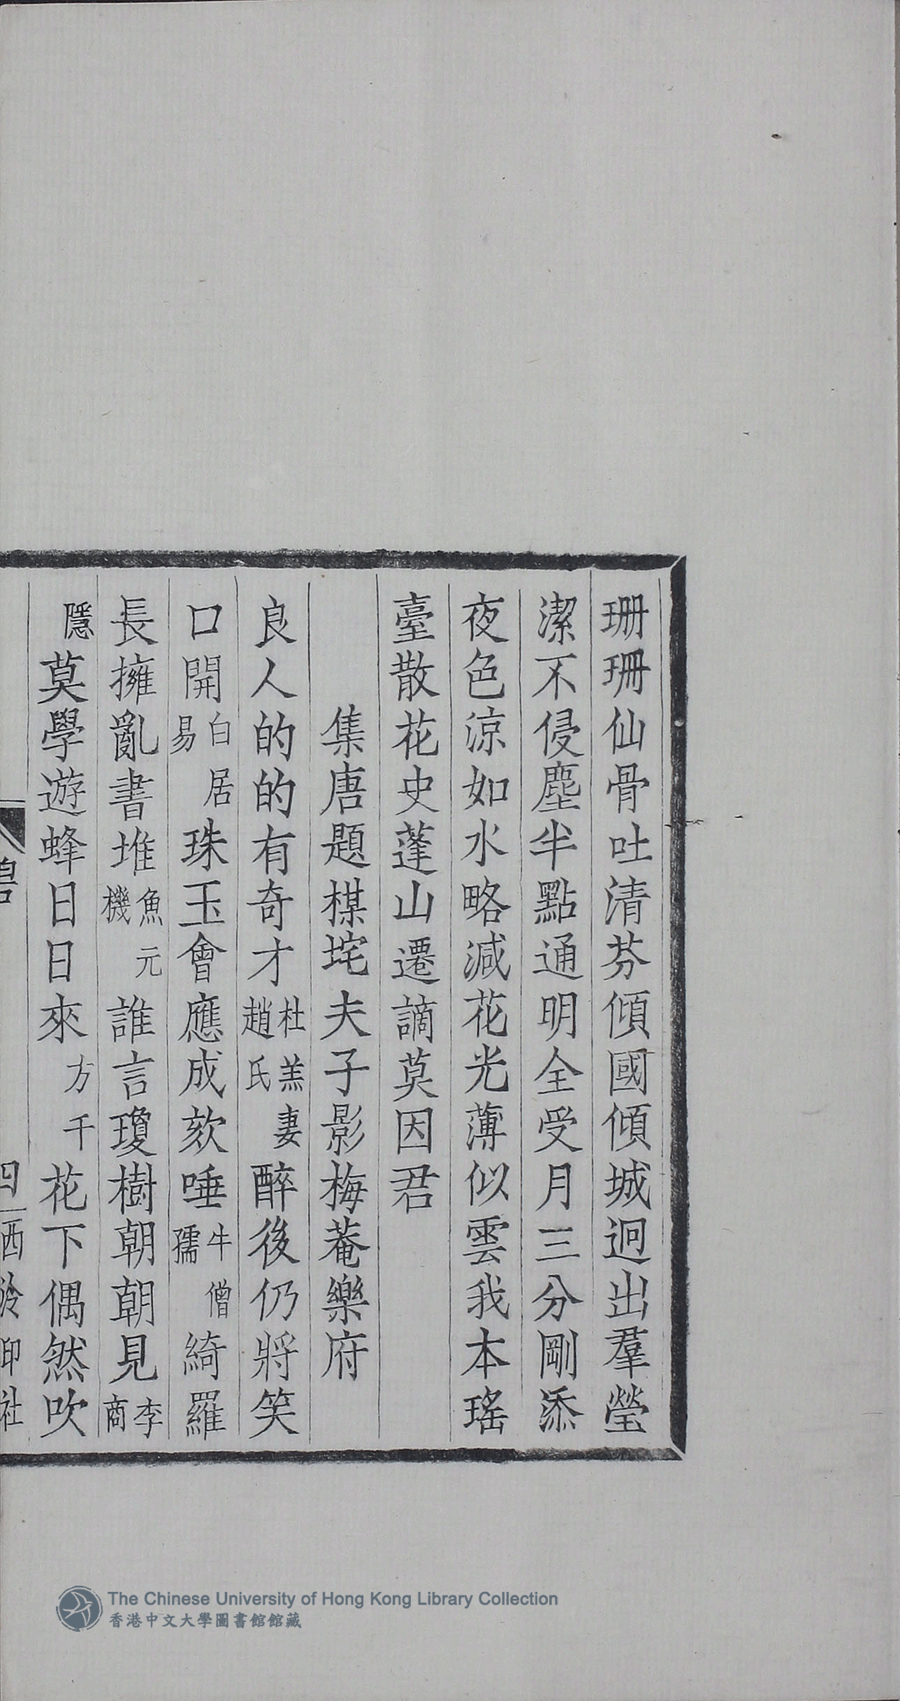 珊珊仙骨吐清芬傾國傾城迥出羣瑩
潔不侵塵半點通明全受月三分剛添
夜色涼如水略減花光薄似雲我本瑤
臺散花史蓬山遷謫莫因君
集唐題楳垞夫子影梅菴樂府
良人的的有奇才杜羔妻趙氏醉後仍將笑
口開白居易珠玉會應成欬唾牛僧孺綺羅
長擁亂書堆魚元機誰言瓊樹朝朝見李商
隱莫學遊蜂日日來方干花下偶然吹
四 西泠印社
The Chinese University of Hong Kong Library Collection
香港中文大學圖書館館藏